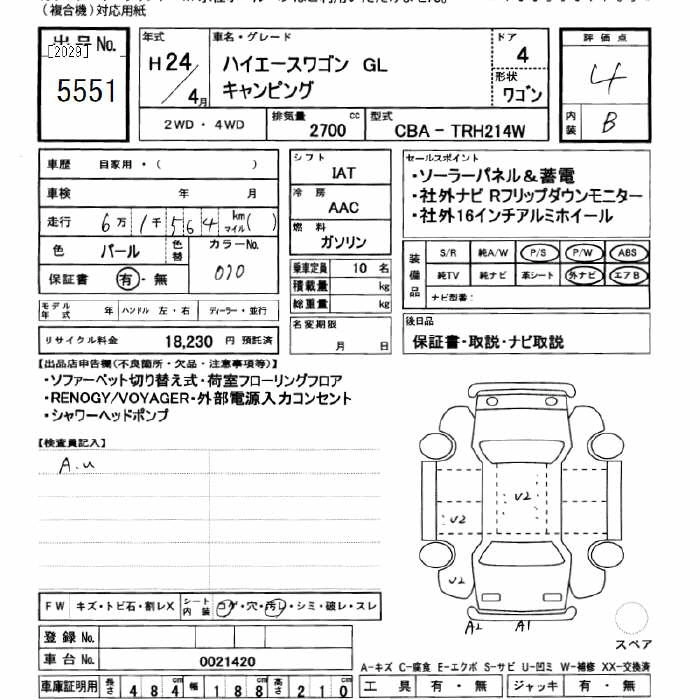 (複合機)対応用紙
出品 No.
[2029]
5551
年式
H24/4月
車名・グレード
ハイエースワゴン GL
キャンピング
ドア
4
形状
ワゴン
評価点
4
内装
B
2WD・4WD
排気量
2700 cc
型式
CBA - TRH214W
車歴 自家用・( )
車検 年 月
走行 6万1千564 km マイル( )
色 パール
色替
カラーNo.
070
保証書 有・無
モデル年式 年 ハンドル 左・右 ディーラー・並行
リサイクル料金 18,230 円 預託済
シフト
IAT
冷房
AAC
燃料
ガソリン
乗車定員 10 名
積載量 kg
総重量 kg
名変期限
月 日
セールスポイント
・ソーラーパネル&蓄電
・社外ナビ Rフリップダウンモニター
・社外16インチアルミホイール
装備品
S/R 純A/W P/S P/W ABS
純TV 純ナビ 革シート 外ナビ エアB
ナビ型番:
後日品
保証書・取説・ナビ取説
【出品店申告欄(不良箇所・欠品・注意事項等)】
・ソファーベット切り替え式・荷室フローリングフロア
・RENOGY/VOYAGER・外部電源入力コンセント
・シャワーヘッドポンプ
【検査員記入】
A.u
U2
U2
U2
A2 A1
スペア
FW キズ・トビ石・割レX
シート内装 コゲ・穴・汚レ・シミ・破レ・スレ
登録 No.
車台 No. 0021420
車庫証明用 長さ 484 cm 幅 188 cm 高さ 210 cm
A-キズ C-腐食 E-エクボ S-サビ U-凹ミ W-補修 XX-交換済
工具 有・無 ジャッキ 有・無